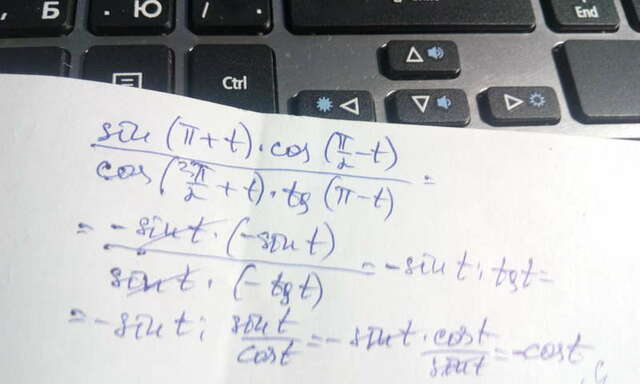 Б Ю End
Ctrl
sin (π+t)·cos (π/2-t)
cos(3π/2+t)·tg (π-t) =
= -sin t·(-sin t)
sin t·(-tg t) = -sin t : tg t =
= -sin t : sin t/cos t = -sin t·cos t/sin t = -cos t